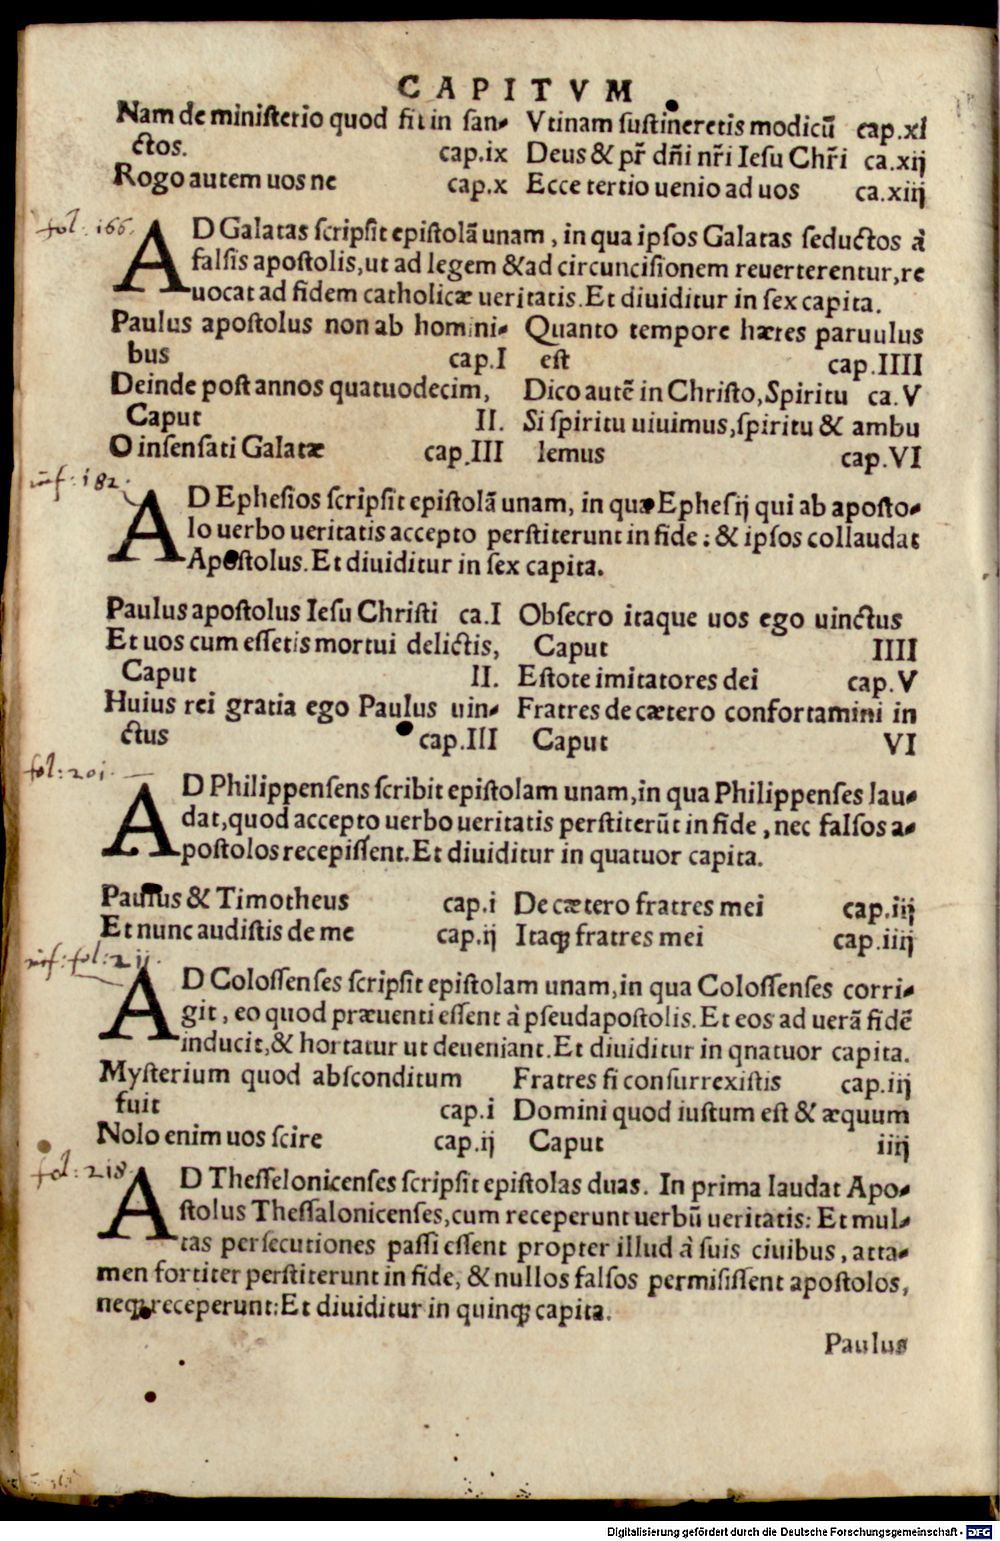 CAPITVM
Nam de ministerio quod fit in san-
ctos. cap.ix
Rogo autem uos ne cap.x
Vtinam sustineretis modicũ cap.xi
Deus & pr̃ dñi nr̃i Iesu Chr̃i ca.xij
Ecce tertio uenio ad uos ca.xiij
fol. 166.
AD Galatas scripsit epistolã unam, in qua ipsos Galatas seductos à
falsis apostolis, ut ad legem & ad circuncisionem reuerterentur, re
uocat ad fidem catholicæ ueritatis. Et diuiditur in sex capita.
Paulus apostolus non ab homini-
bus cap.I
Deinde post annos quatuodecim,
Caput II.
O insensati Galatæ cap.III
Quanto tempore hæres paruulus
est cap.IIII
Dico autẽ in Christo, Spiritu ca.V
Si spiritu uiuimus, spiritu & ambu
lemus cap.VI
182.
AD Ephesios scripsit epistolã unam, in qua Ephesij qui ab aposto-
lo uerbo ueritatis accepto perstiterunt in fide: & ipsos collaudat
Apostolus. Et diuiditur in sex capita.
Paulus apostolus Iesu Christi ca.I
Et uos cum essetis mortui delictis,
Caput II.
Huius rei gratia ego Paulus uin-
ctus cap.III
Obsecro itaque uos ego uinctus
Caput IIII
Estote imitatores dei cap.V
Fratres de cætero confortamini in
Caput VI
fol: 201.
AD Philippensens scribit epistolam unam, in qua Philippenses lau-
dat, quod accepto uerbo ueritatis perstiterũt in fide, nec falsos a-
postolos recepissent. Et diuiditur in quatuor capita.
Paulus & Timotheus cap.i
Et nunc audistis de me cap.ij
De cætero fratres mei cap.iij
Itaq; fratres mei cap.iiij
fol: 211.
AD Colossenses scripsit epistolam unam, in qua Colossenses corri-
git, eo quod præuenti essent à pseudapostolis. Et eos ad uerã fidẽ
inducit, & hortatur ut deueniant. Et diuiditur in qnatuor capita.
Mysterium quod absconditum
fuit cap.i
Nolo enim uos scire cap.ij
Fratres si consurrexistis cap.iij
Domini quod iustum est & æquum
Caput iiij
fol: 218.
AD Thesselonicenses scripsit epistolas duas. In prima laudat Apo-
stolus Thessalonicenses, cum receperunt uerbũ ueritatis: Et mul-
tas persecutiones passi essent propter illud à suis ciuibus, atta-
men fortiter perstiterunt in fide, & nullos falsos permisissent apostolos,
neq; receperunt: Et diuiditur in quinq; capita.
Paulus
Digitalisierung gefördert durch die Deutsche Forschungsgemeinschaft - DFG